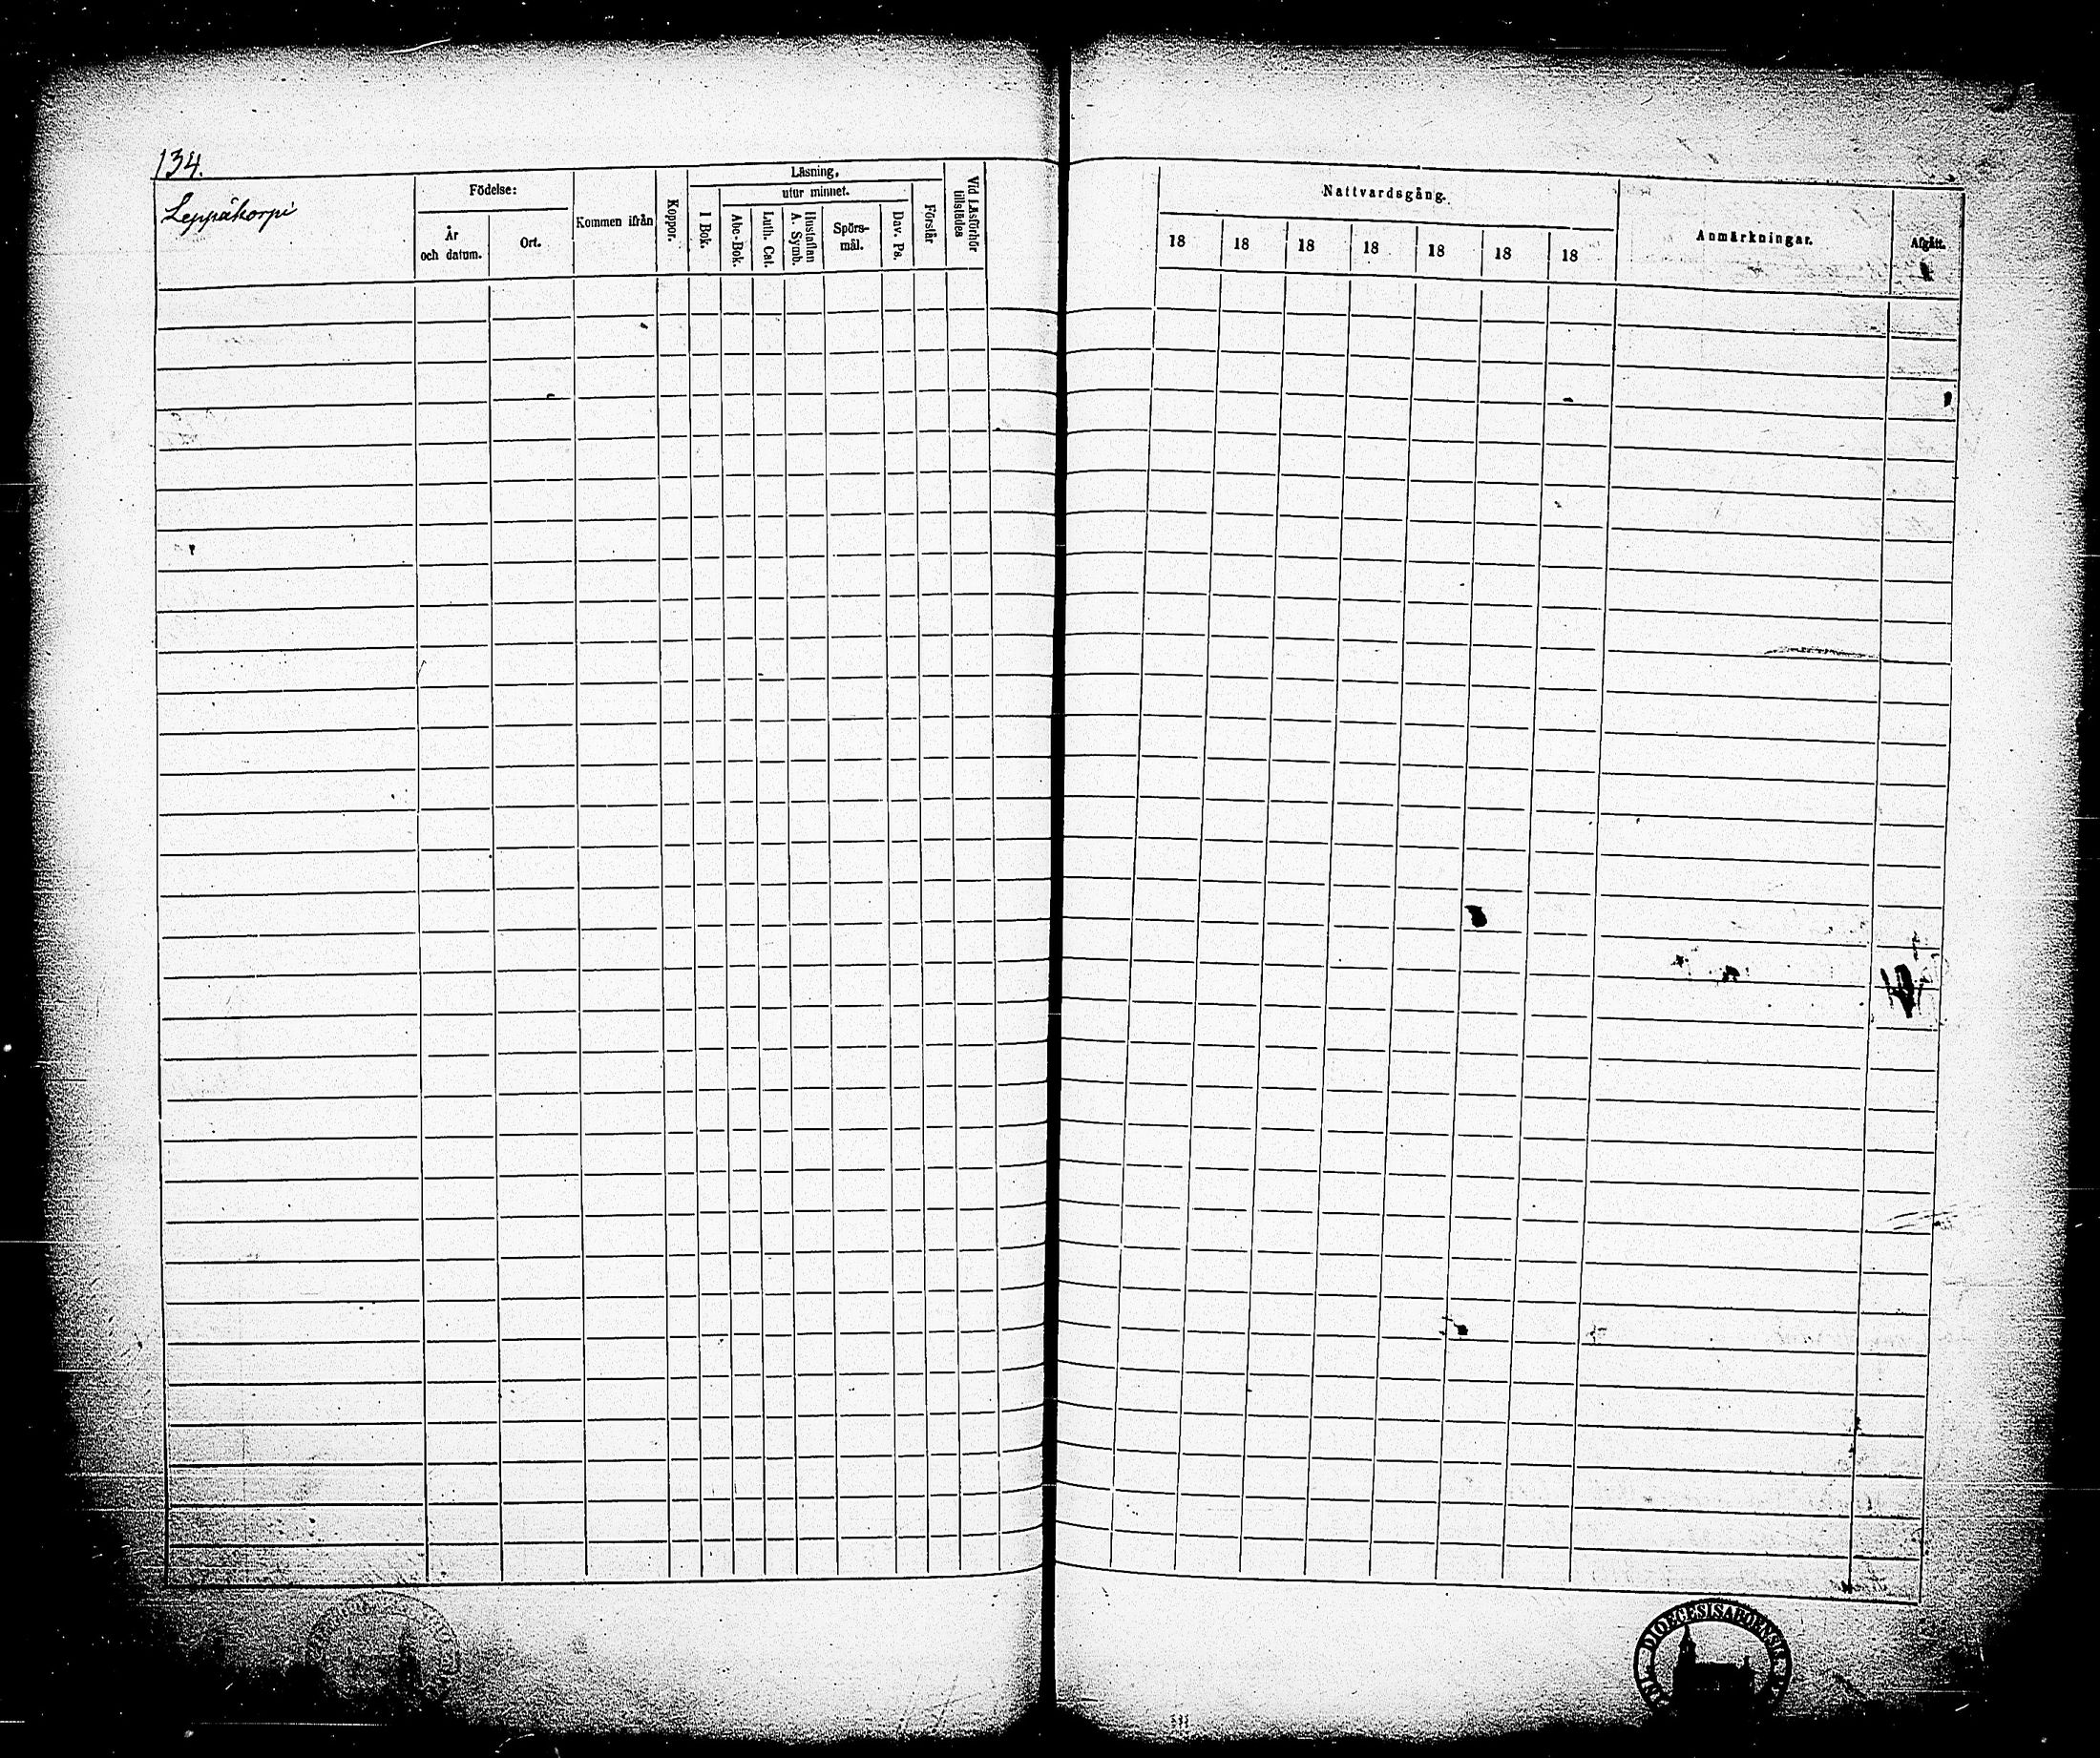 134.
Leppäkorpi
Födelse:
År
och datum.
Ort.
Kommen ifrån
Koppor.
Läsning,
utur minnet.
I Bok.
Abc-Bok.
Luth. Cat.
Hustaflan
A. Symb.
Spörs-
mål.
Dav. Ps.
Förstår
Vid Läsförhör
tillstädes
Nattvardsgång.
18 18 18 18 18 18 18
Anmärkningar.
Afgått.
DIOECESIS ABOENSIS